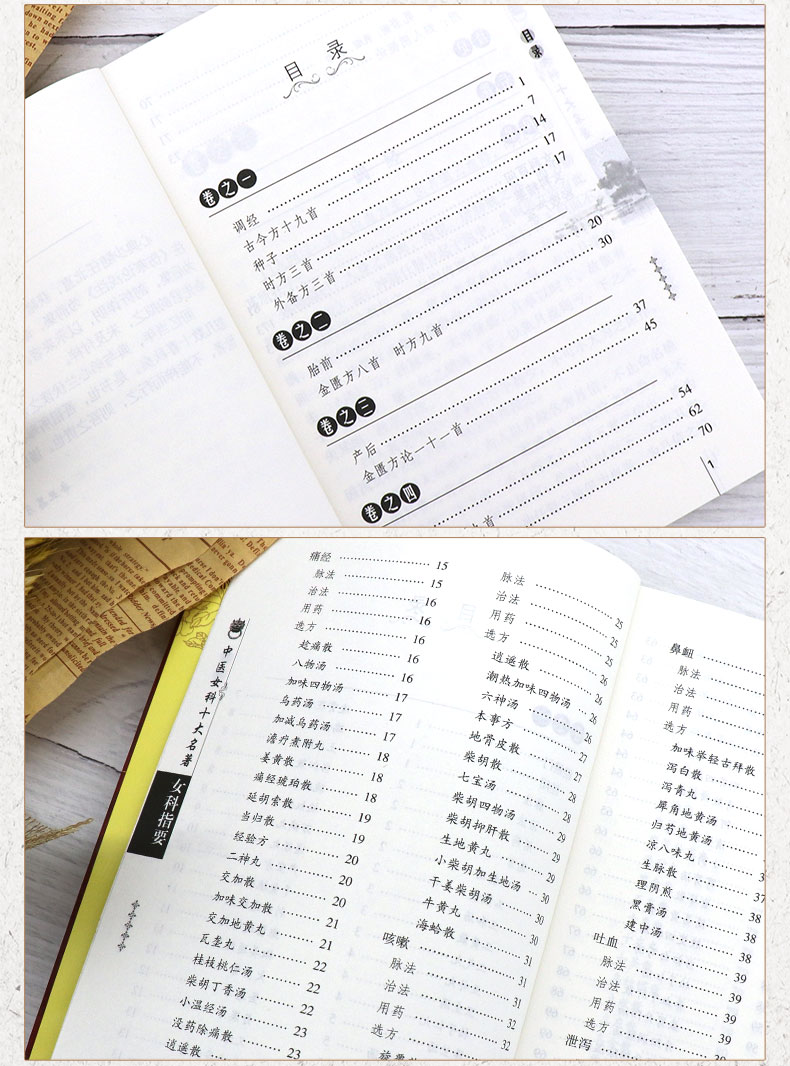 目录
目录
卷之一
调经 1
古今方十九首 7
种子 14
时方三首 17
外备方三首 17
卷之二
胎前 20
金匮方八首 时方九首 30
卷之三
产后 37
金匮方论一十一首 45
卷之四
54
62
十首 70
1
中医女科十大名著
女科指要
痛经 15
脉法 15
治法 16
用药 16
选方 16
趁痛散 16
八物汤
加味四物汤 17
乌药汤 17
加减乌药汤 17
澹疗煮附丸 18
姜黄散 18
痛经琥珀散 18
延胡索散 19
当归散 19
经验方 20
二神丸 20
交加散 20
加味交加散 21
交加地黄丸 21
瓦垄丸 22
桂枝桃仁汤 22
柴胡丁香汤 22
小温经汤 23
没药除痛散 23
逍遥散
脉法 25
治法 25
用药 25
选方 25
逍遥散 26
潮热加味四物汤 26
六神汤 26
本事方 27
地骨皮散 27
柴胡散 28
七宝汤 28
柴胡四物汤 29
柴胡抑肝散 29
生地黄丸 29
小柴胡加生地汤 30
干姜柴胡汤 30
牛黄丸 30
海蛤散 31
咳嗽 31
脉法 31
治法 32
用药 32
选方
鼻衄
脉法
治法
用药
选方
加味举轻古拜散
泻白散
泻青丸
犀角地黄汤
归芍地黄汤
凉八味丸
生脉散 37
理阴煎 38
黑膏汤 38
建中汤 38
吐血 39
脉法 39
治法 39
用药 39
选方 39
泄泻